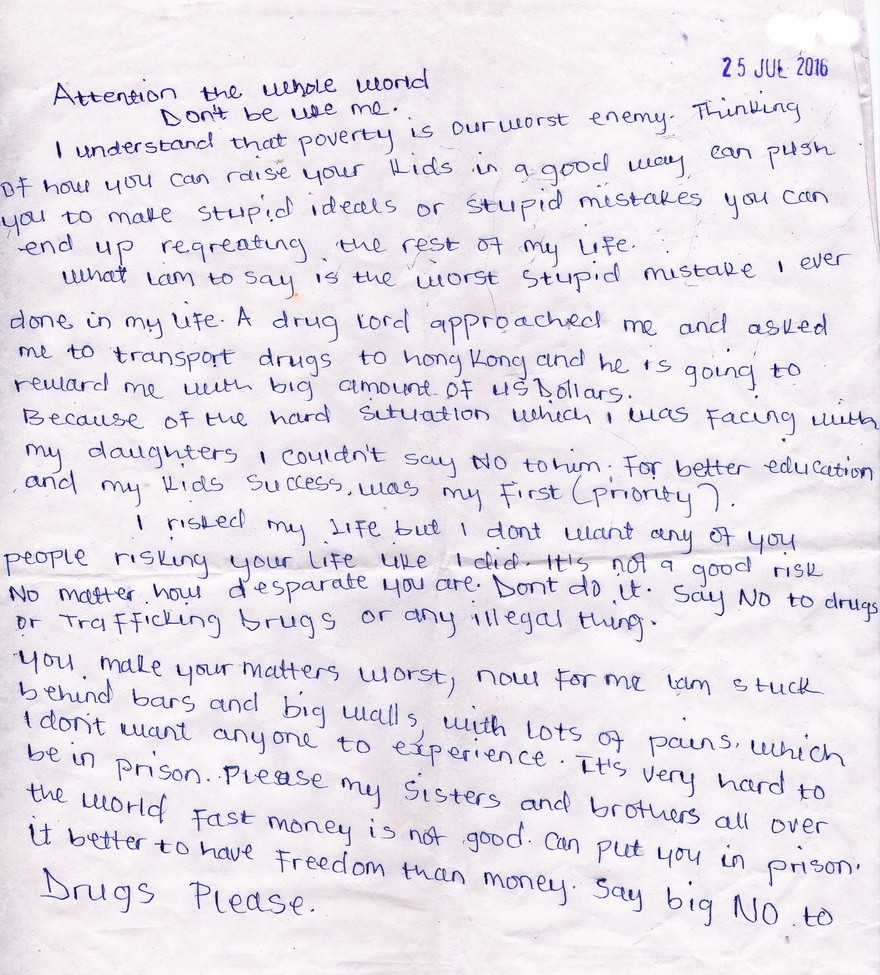 25 JUL 2016
Attention the whole world
Don't be use me.
I understand that poverty is our worst enemy. Thinking
of how you can raise your kids in a good way can push
you to make stupid ideals or stupid mistakes you can
end up regreating the rest of my life.
What Iam to say is the worst stupid mistake I ever
done in my life. A drug lord approached me and asked
me to transport drugs to hong Kong and he is going to
reward me with big amount of US Dollars.
Because of the hard situation which I was facing with
my daughters I couldn't say NO to him. For better education
and my kids success, was my first (priority).
I risked my life but I dont want any of you
people risking your life like I did. It's not a good risk
No matter how desparate you are. Dont do it. Say NO to drugs
or Trafficking Drugs or any illegal thing.
You make your matters worst, now for me Iam stuck
behind bars and big walls, with lots of pains, which
I don't want anyone to experience. It's very hard to
be in prison. Please my sisters and brothers all over
the world fast money is not good. Can put you in prison.
it better to have Freedom than money. Say big NO to
Drugs Please.